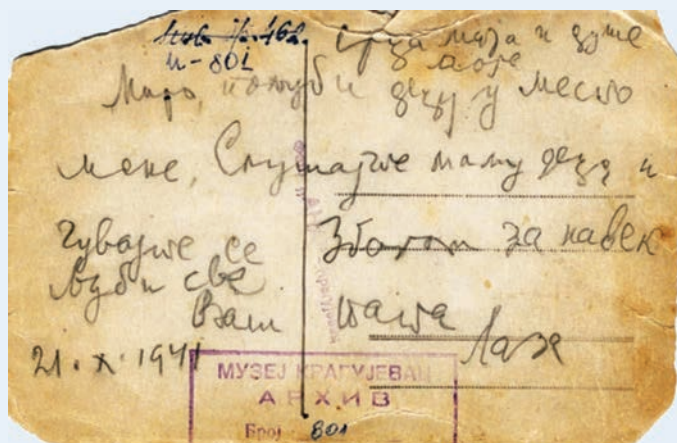 и-801
срца моја и душе
моје
Маро, пољуби децу у место
мене, Слушајте маму децо и
чувајте се Збогом за навек
љуби све
Ваш тата
Лаза
21. X. 1941
МУЗЕЈ КРАГУЈЕВАЦ
АРХИВ
Број 801